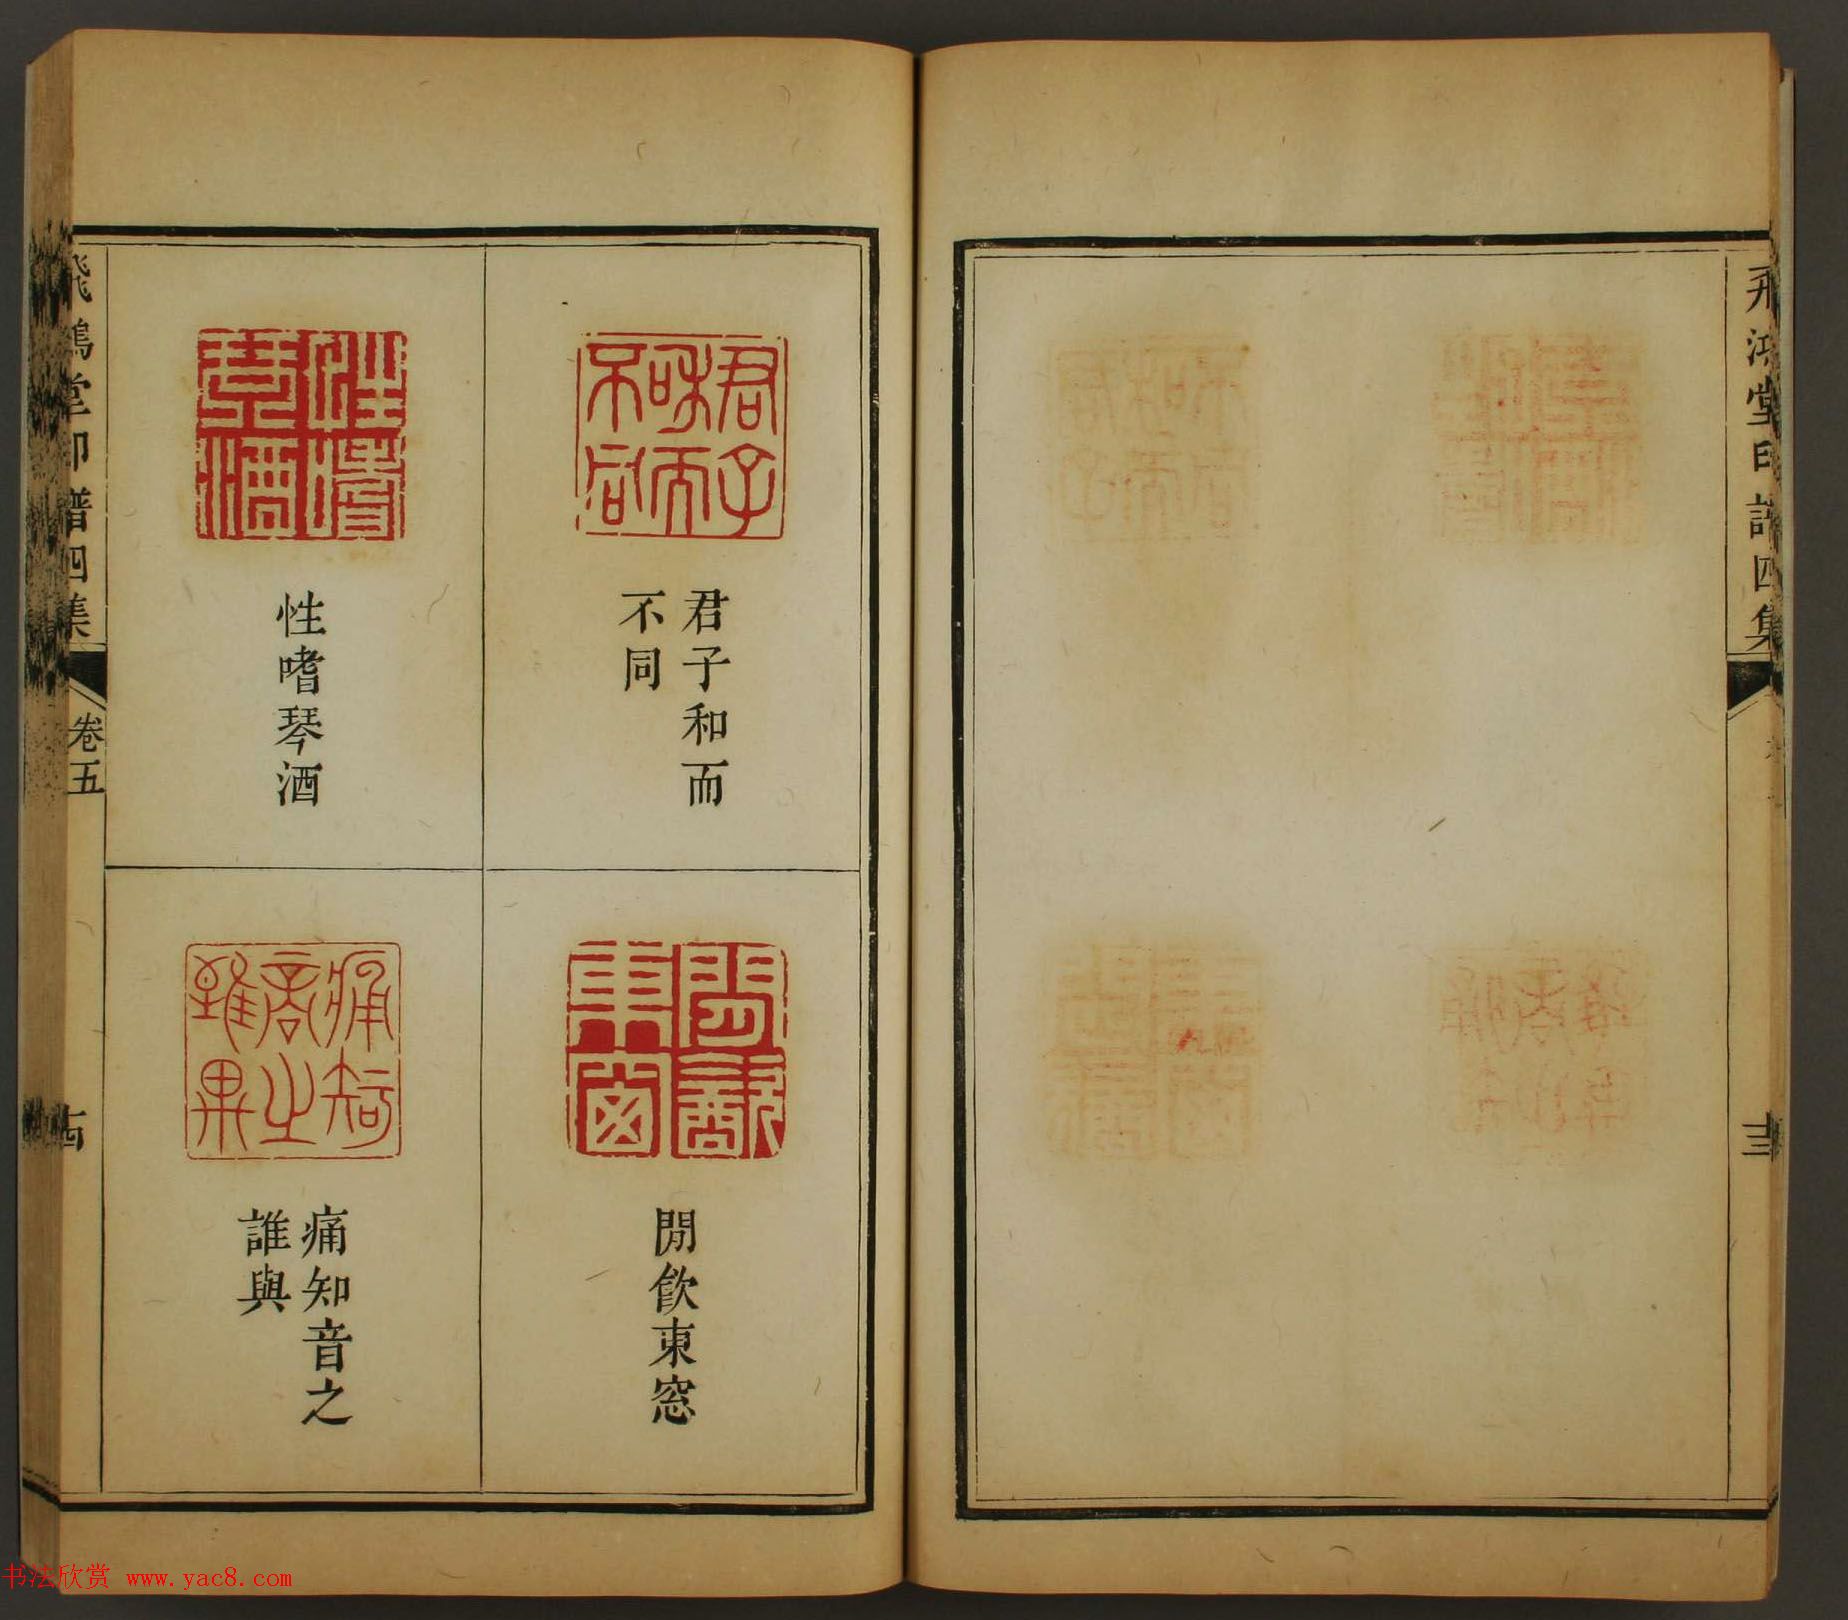 飛鴻堂印譜四集
君子和而
不同
性嗜琴酒
閒飲東窓
痛知音之
誰與
飛鴻堂印譜四集
卷五
古
书法欣赏 www.yac8.com